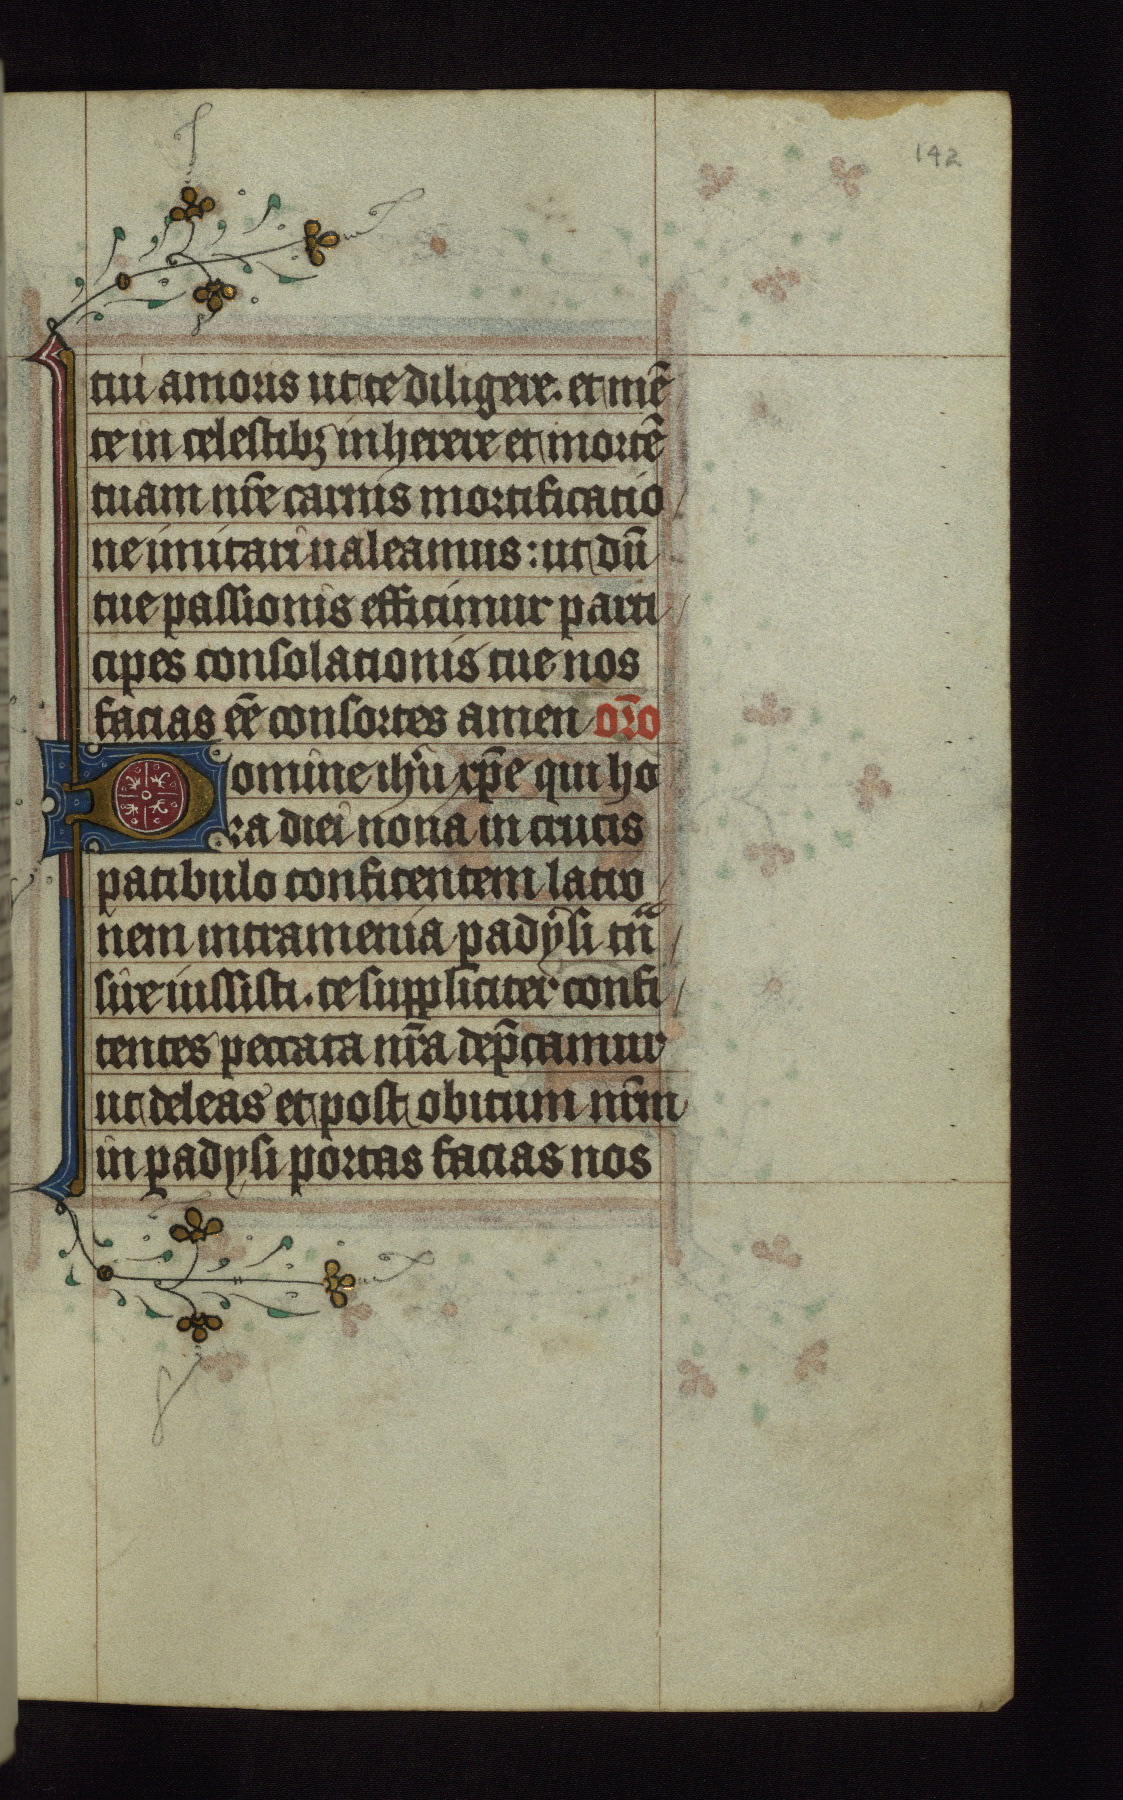 142
tui amoris ut te diligere. et mē
te in celestibꝫ inherere et mortē
tuam nr̄e carnis mortificatio
ne imitari ualeamus: ut dū
tue passionis efficimur parti
cipes consolationis tue nos
facias eē consortes amen or̄o
Domine ihu xp̄e qui ho
ra diei nona in crucis
patibulo confitentem latro
nem intra menia padysi trā
sire iussisti. te suppliciter confi
tentes peccata nr̄a dep̄camur
ut deleas et post obitum nr̄m
in padysi portas facias nos